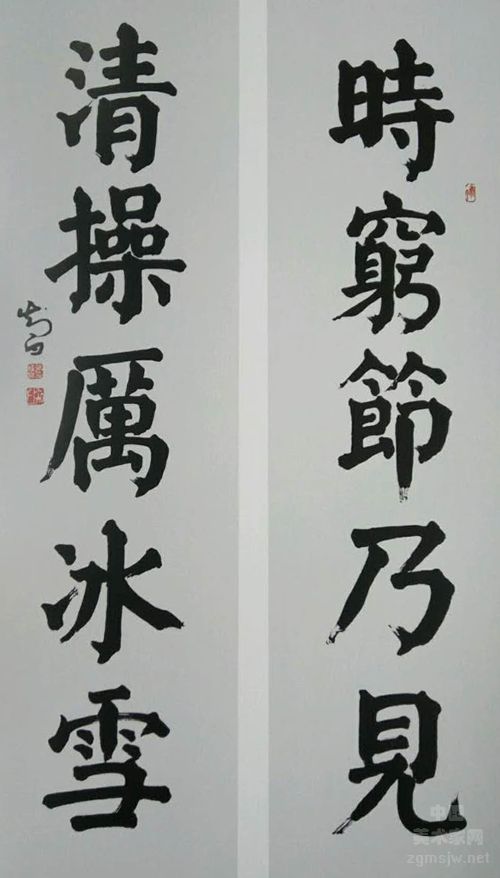 時窮節乃見
清操厲冰雪
中国
美术家网
zgmsjw.net